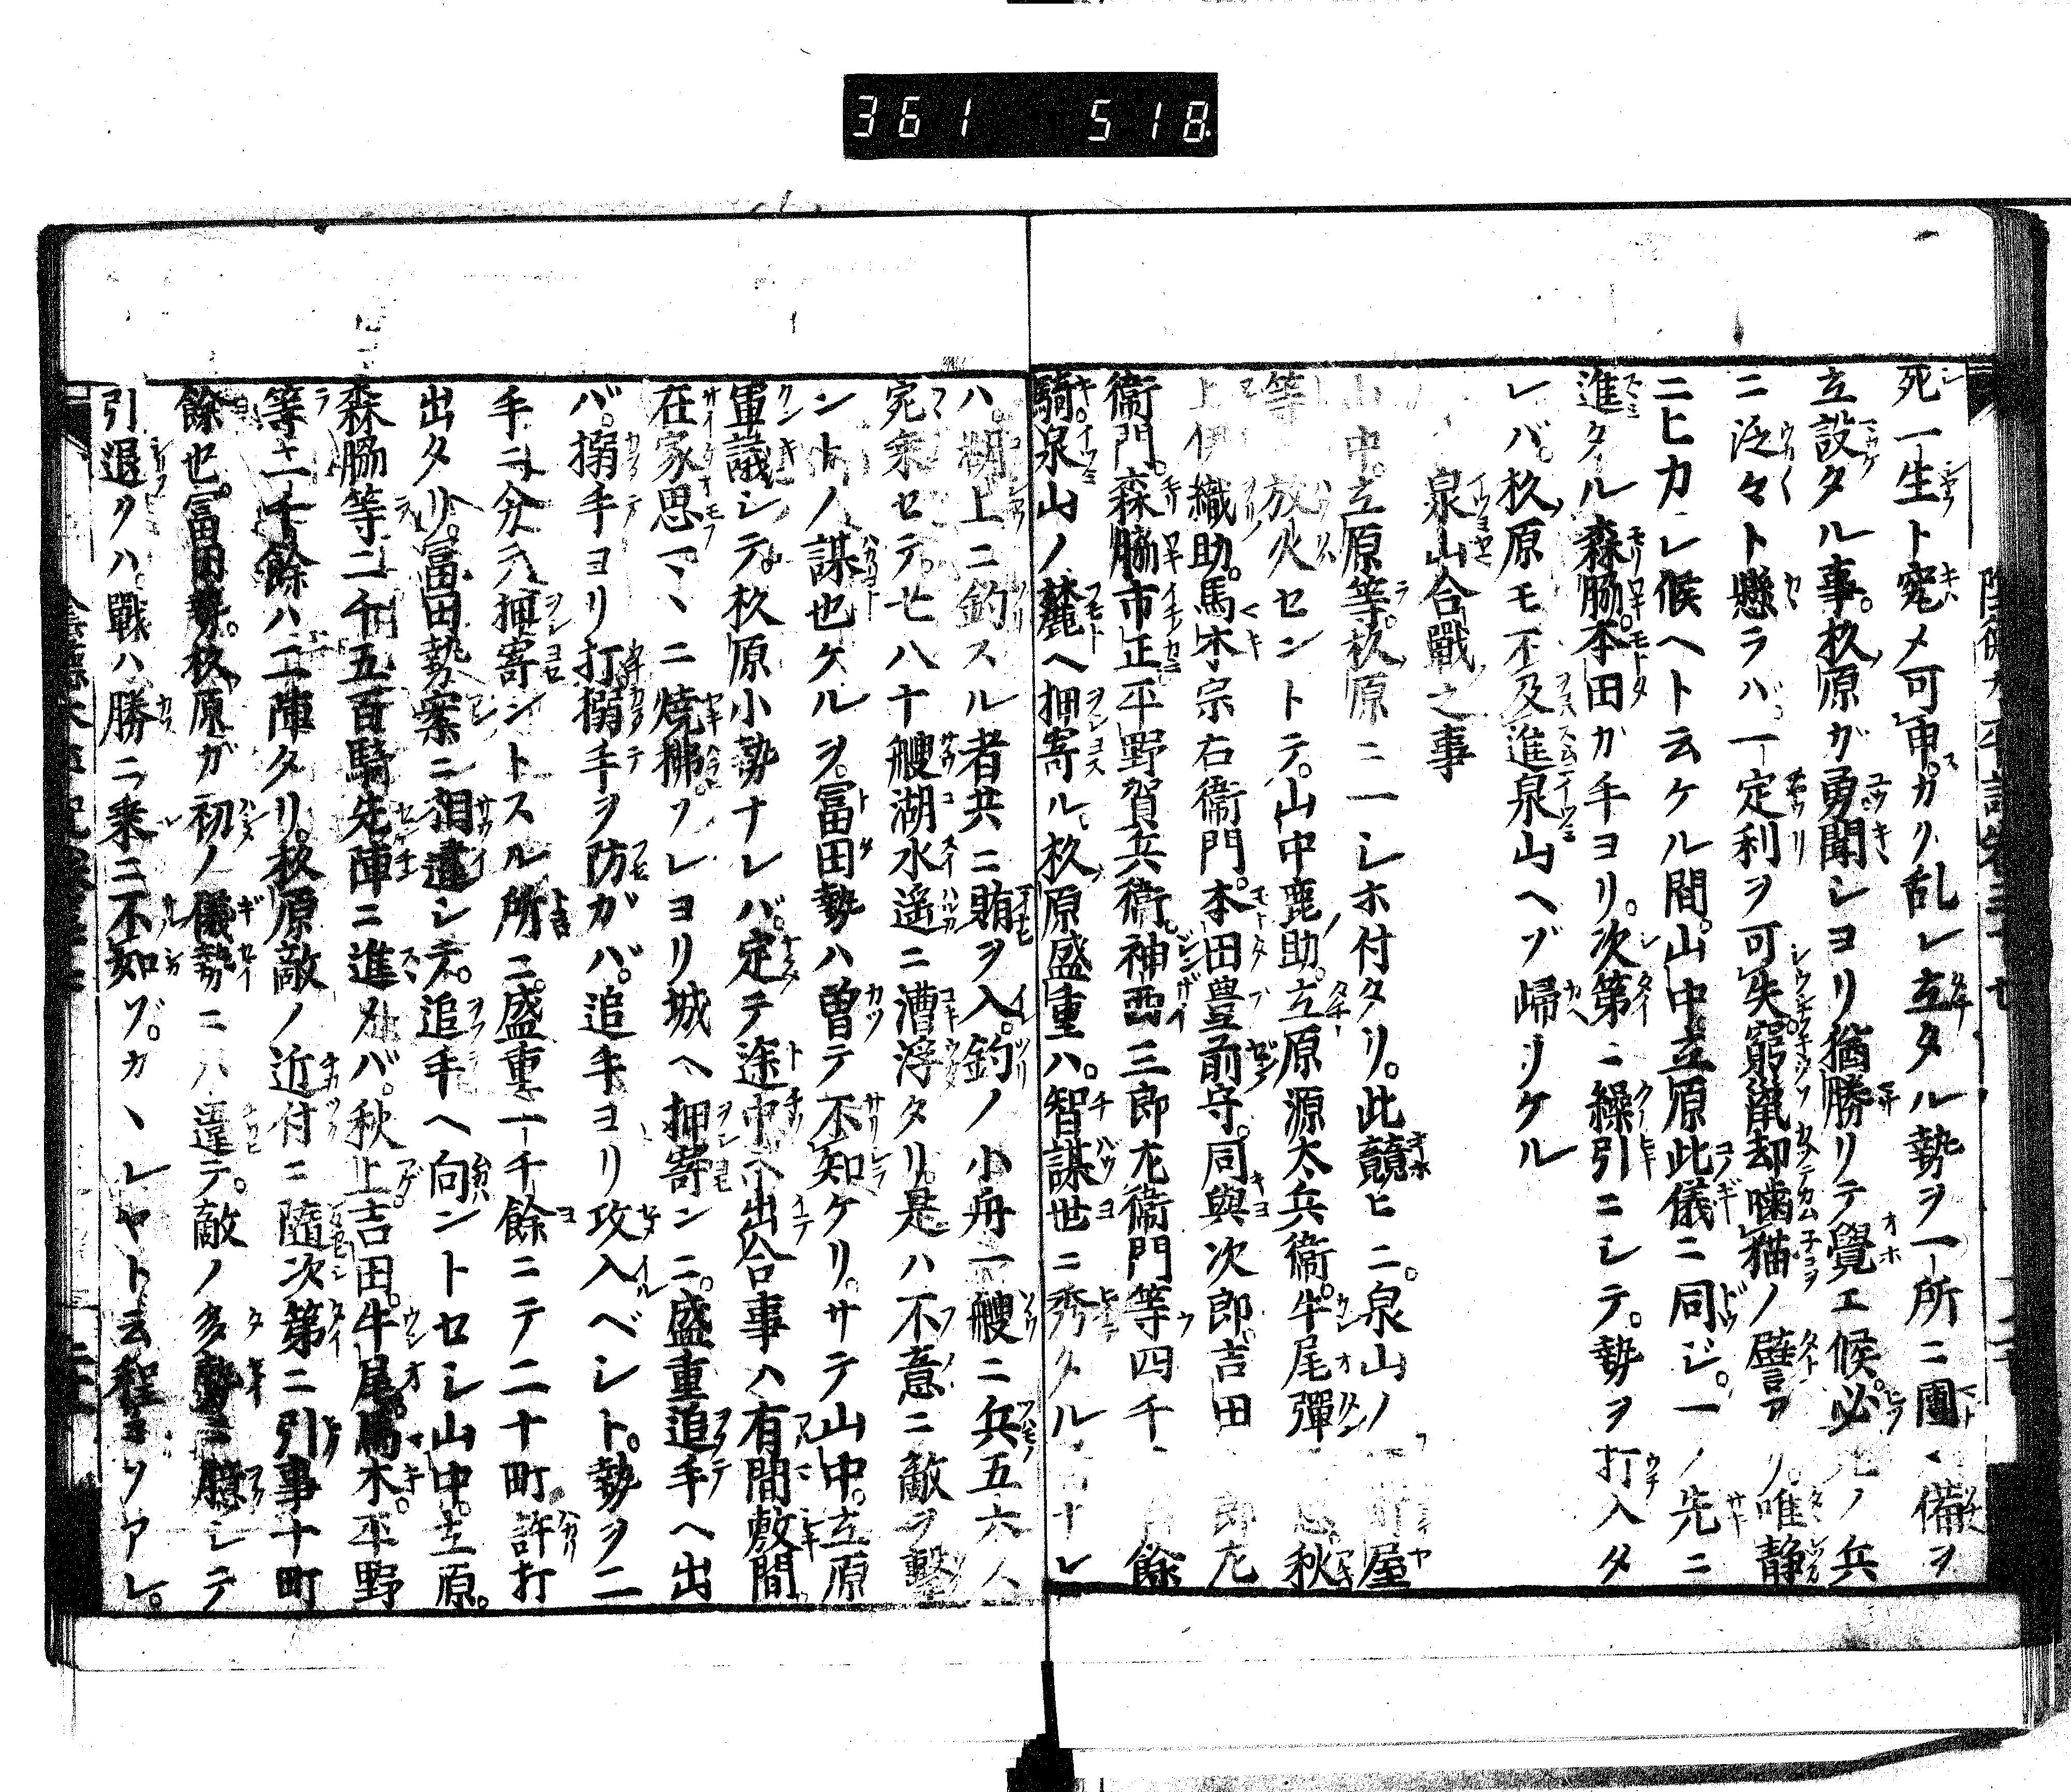 361 518.
死一生ト究メ可申。カリ乱レ立タル勢ヲ一所ニ圍ミ備ヲ
立設タル事。杦原ガ勇聞シヨリ猶勝リテ覺エ候。必 ノ兵
ニ泛々ト懸ラハ。一定利ヲ可失。窮鼠却噛猫ノ譬アリ。唯静
ニヒカレ候ヘト云ケル間。山中立原此儀ニ同ジ。一ノ先ニ
進タル森脇。本田カ手ヨリ。次第ニ繰引ニシテ。勢ヲ打入タ
レバ。杦原モ不及進泉山ヘゾ皈リケル
泉山合戰之事
山中。立原等。杦原ニ一シホ付タリ。此競ヒニ。泉山ノ 町屋
等 放火セントテ。山中鹿助。立原源太兵衞。牛尾彈 忠。秋
上伊織助。馬木宗右衞門。本田豊前守。同與次郎。吉田 郎左
衞門。森脇市正平野賀兵衞。神西三郎左衞門等四千 餘
騎。泉山ノ麓ヘ押寄ル。杦原盛重ハ。智謀世ニ秀タル ナレ
ハ。湖上ニ釣スル者共ニ賄ヲ入。釣ノ小舟一艘ニ兵五六人
宛乘セテ。七八十艘湖水遥ニ漕浮タリ。是ハ不意ニ敵ヲ擊
ントノ謀也ケルヲ。冨田勢ハ曽テ不知ケリ。サテ山中。立原
軍議シテ。杦原小勢ナレバ。定テ途中ヘ出合事ハ有間敷間
在家思マヽニ燒拂ソレヨリ城ヘ押寄ンニ。盛重追手ヘ出
バ。搦手ヨリ打。搦手ヲ防ガバ。追手ヨリ攻入ベシト。勢ヲ二
手ニ分テ押寄ントスル所ニ。盛重一千餘ニテ二十町許打
出タリ。冨田勢案ニ相違シテ。追手ヘ向ントセシ山中。立原。
森脇等二千五百騎先陣ニ進メバ。秋上吉田。牛尾。馬木平野
等二千餘ハ二陣タリ。杦原敵ノ近付ニ隨次第ニ引事十町
餘也。冨田勢。杦原ガ初ノ儀勢ニハ違テ。敵ノ多勢ニ臆シテ
引退クハ。戰ハ勝ニ乗ニ不如ゾ。カヽレヤト云程コソアレ。